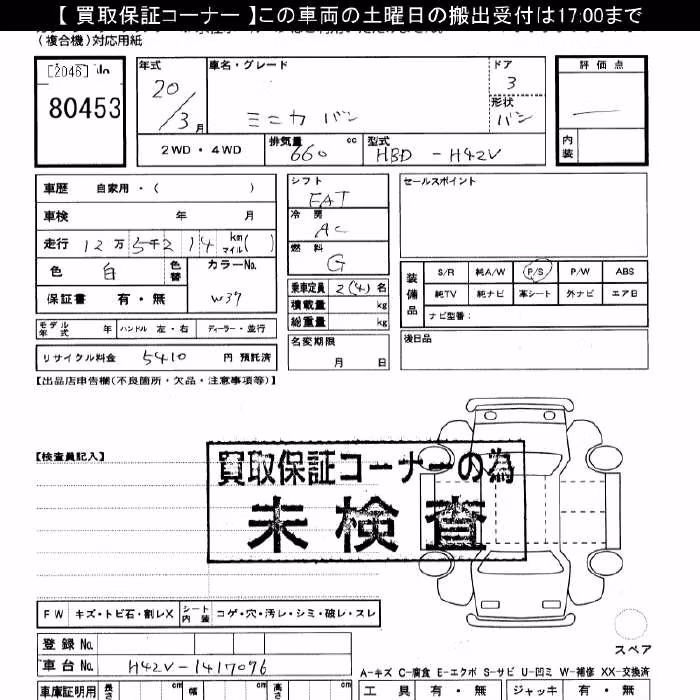 【 買取保証コーナー 】この車両の土曜日の搬出受付は17:00まで
(複合機)対応用紙
[2046] No
80453
年式
20/3月
車名・グレード
ミニカ バン
ドア
3
形状
バン
評価点
内装
2WD・4WD
排気量 660 cc
型式 HBD - H42V
車歴 自家用・( )
車検 年 月
走行 12万5千214 km マイル( )
色 白 色替
カラーNo. W37
保証書 有・無
モデル年式 年 ハンドル 左・右 ディーラー・並行
リサイクル料金 5410 円 預託済
シフト FAT
冷房 AC
燃料 G
乗車定員 2(4)名
積載量 kg
総重量 kg
名変期限 月 日
セールスポイント
装備品
S/R 純A/W P/S P/W ABS
純TV 純ナビ 革シート 外ナビ エアB
ナビ型番:
後日品
【出品店申告欄(不良箇所・欠品・注意事項等)】
【検査員記入】
買取保証コーナーの為
未検査
FW キズ・トビ石・割レX シート内装 コゲ・穴・汚レ・シミ・破レ・スレ
スペア
登録 No.
車台 No. H42V-1417096
A-キズ C-腐食 E-エクボ S-サビ U-凹ミ W-補修 XX-交換済
車庫証明用 長さ cm 幅 cm 高さ cm
工具 有・無 ジャッキ 有・無